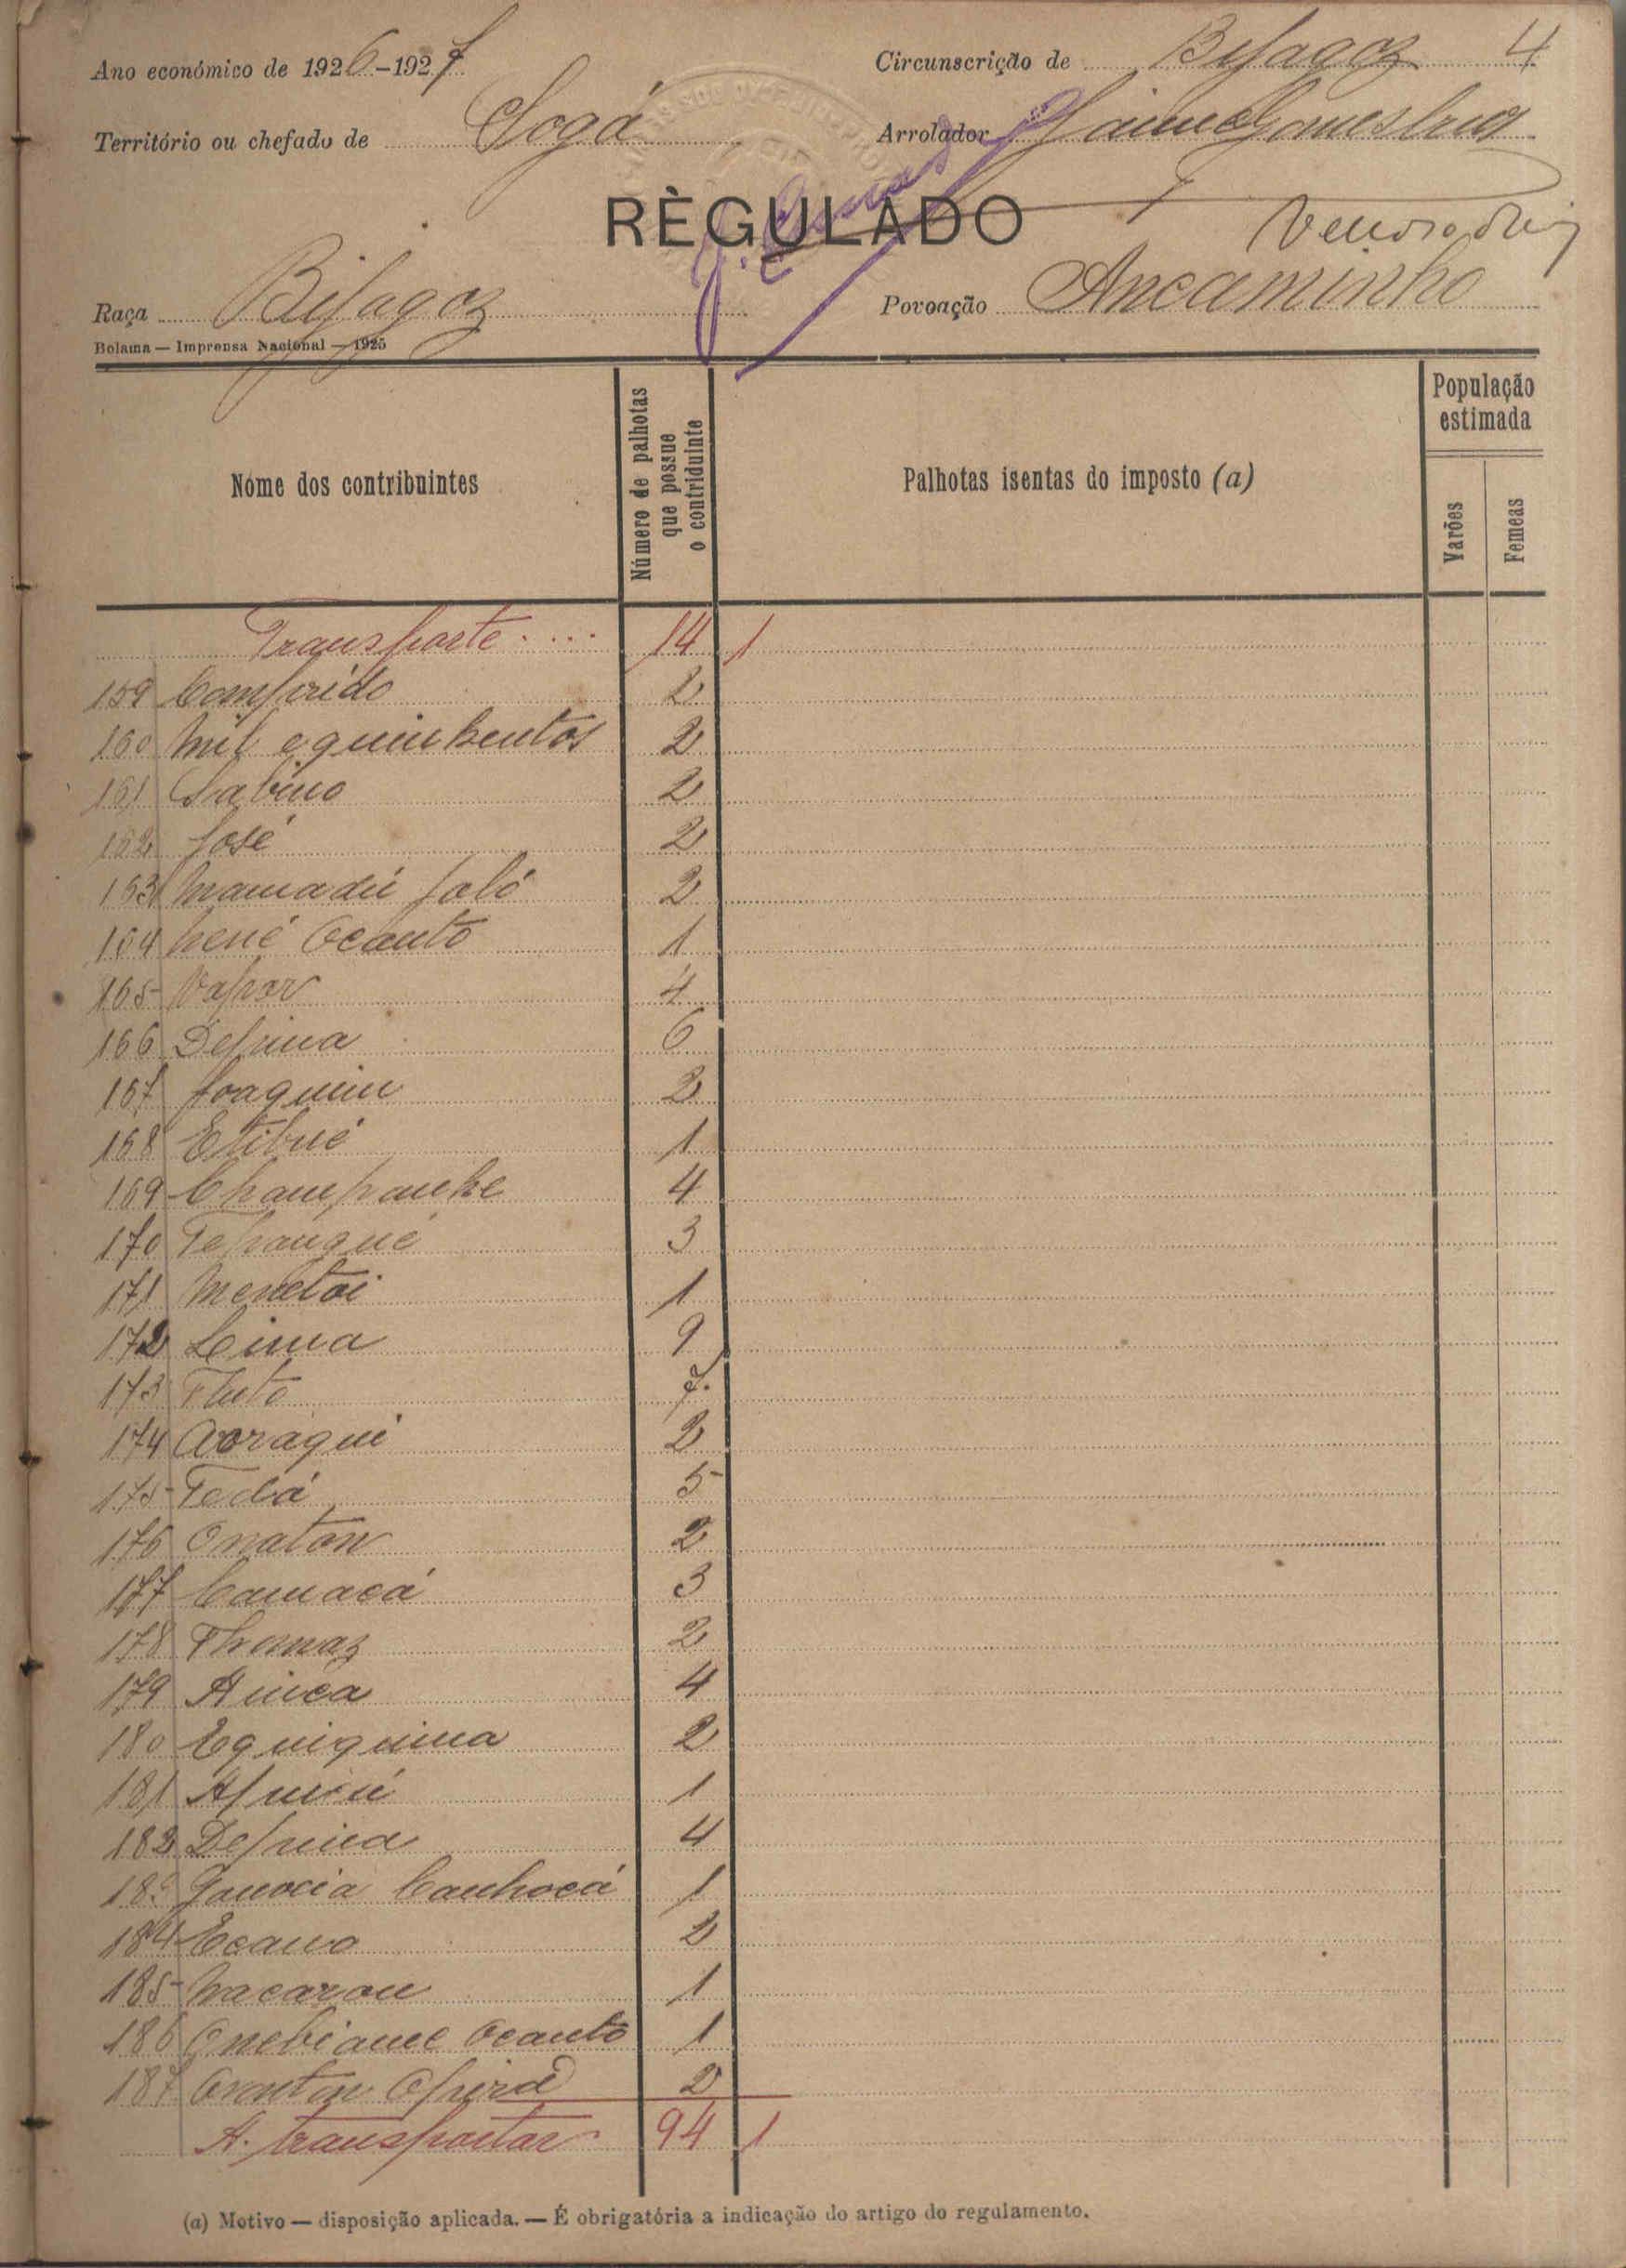 Ano económico de 1926-1927
Circunscrição de Bijagoz 4
Território ou chefado de Sogá
Arrolador Jaime Gomes
RÈGULADO
Raça Bijagoz
Povoação Ancaminho
Bolama — Imprensa Nacional — 1925
Nome dos contribuintes
Número de palhotas que possue o contriduinte
Palhotas isentas do imposto (a)
População estimada
Varões
Femeas
Transporte.... 14 1
159 Comprido 2
160 Mil e quinhentos 2
161 Sabino 2
162 José 2
163 Mamadú Jaló 2
164 Nené Ocanto 1
165 Vapor 4
166 Depina 6
167 Joaquim 2
168 Etibué 1
169 Champanhe 4
170 Tepangué 3
171 Menetoi 1
172 Lima 9
173 Tluto 7
174 Aoraqui 2
175 Tedá 5
176 Onaton 2
177 Camacá 3
178 Thomaz 2
179 Ainca 4
180 Equiquina 2
181 1
182 Depina 4
183 Canhocá 1
184 Ecano 2
185 Macarou 1
186 Onebiame Ocanto 1
187 2
A. transportar 94 1
(a) Motivo — disposição aplicada. — É obrigatória a indicação do artigo do regulamento.